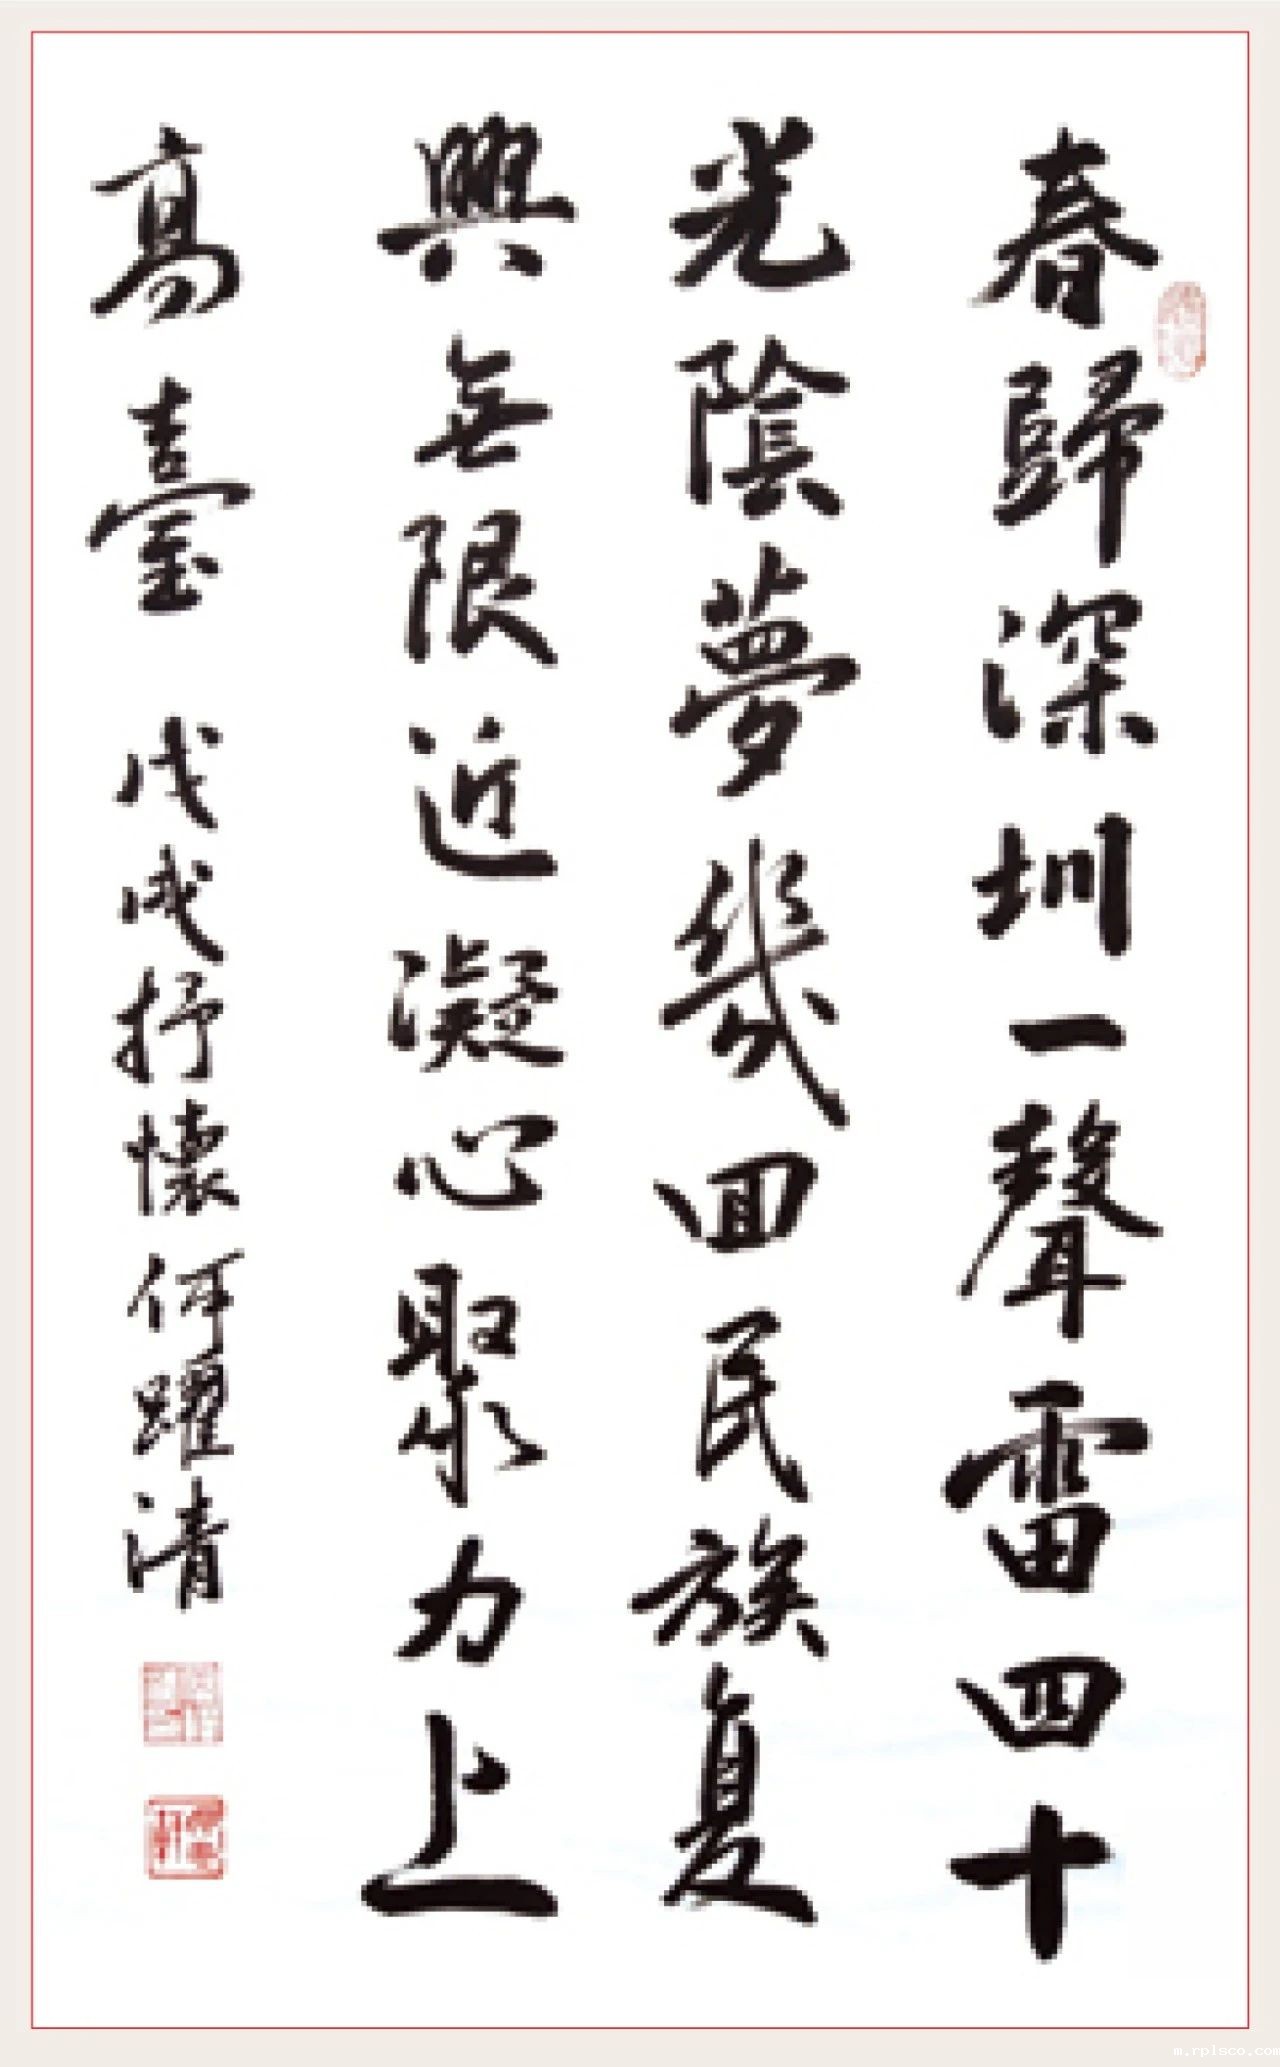 春歸深圳一聲雷四十
光陰夢幾回民族復
興無限近凝心聚力上
高臺 戊戌抒懷何躍清
m.rplsco.com